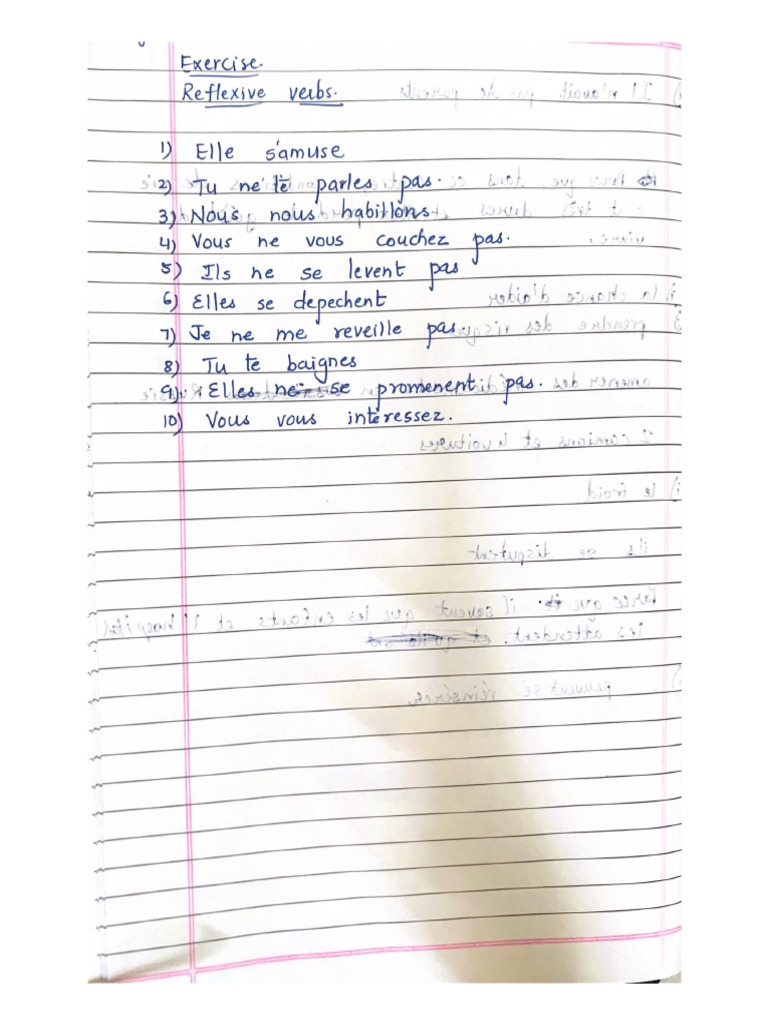 Exercise.
Reflexive verbs.
1) Elle s'amuse
2) Tu ne te parles pas.
3) Nous nous habillons.
4) Vous ne vous couchez pas.
5) Ils ne se levent pas
6) Elles se depechent
7) Je ne me reveille pas
8) Tu te baignes
9) Elles se promenent pas.
10) Vous vous interessez.